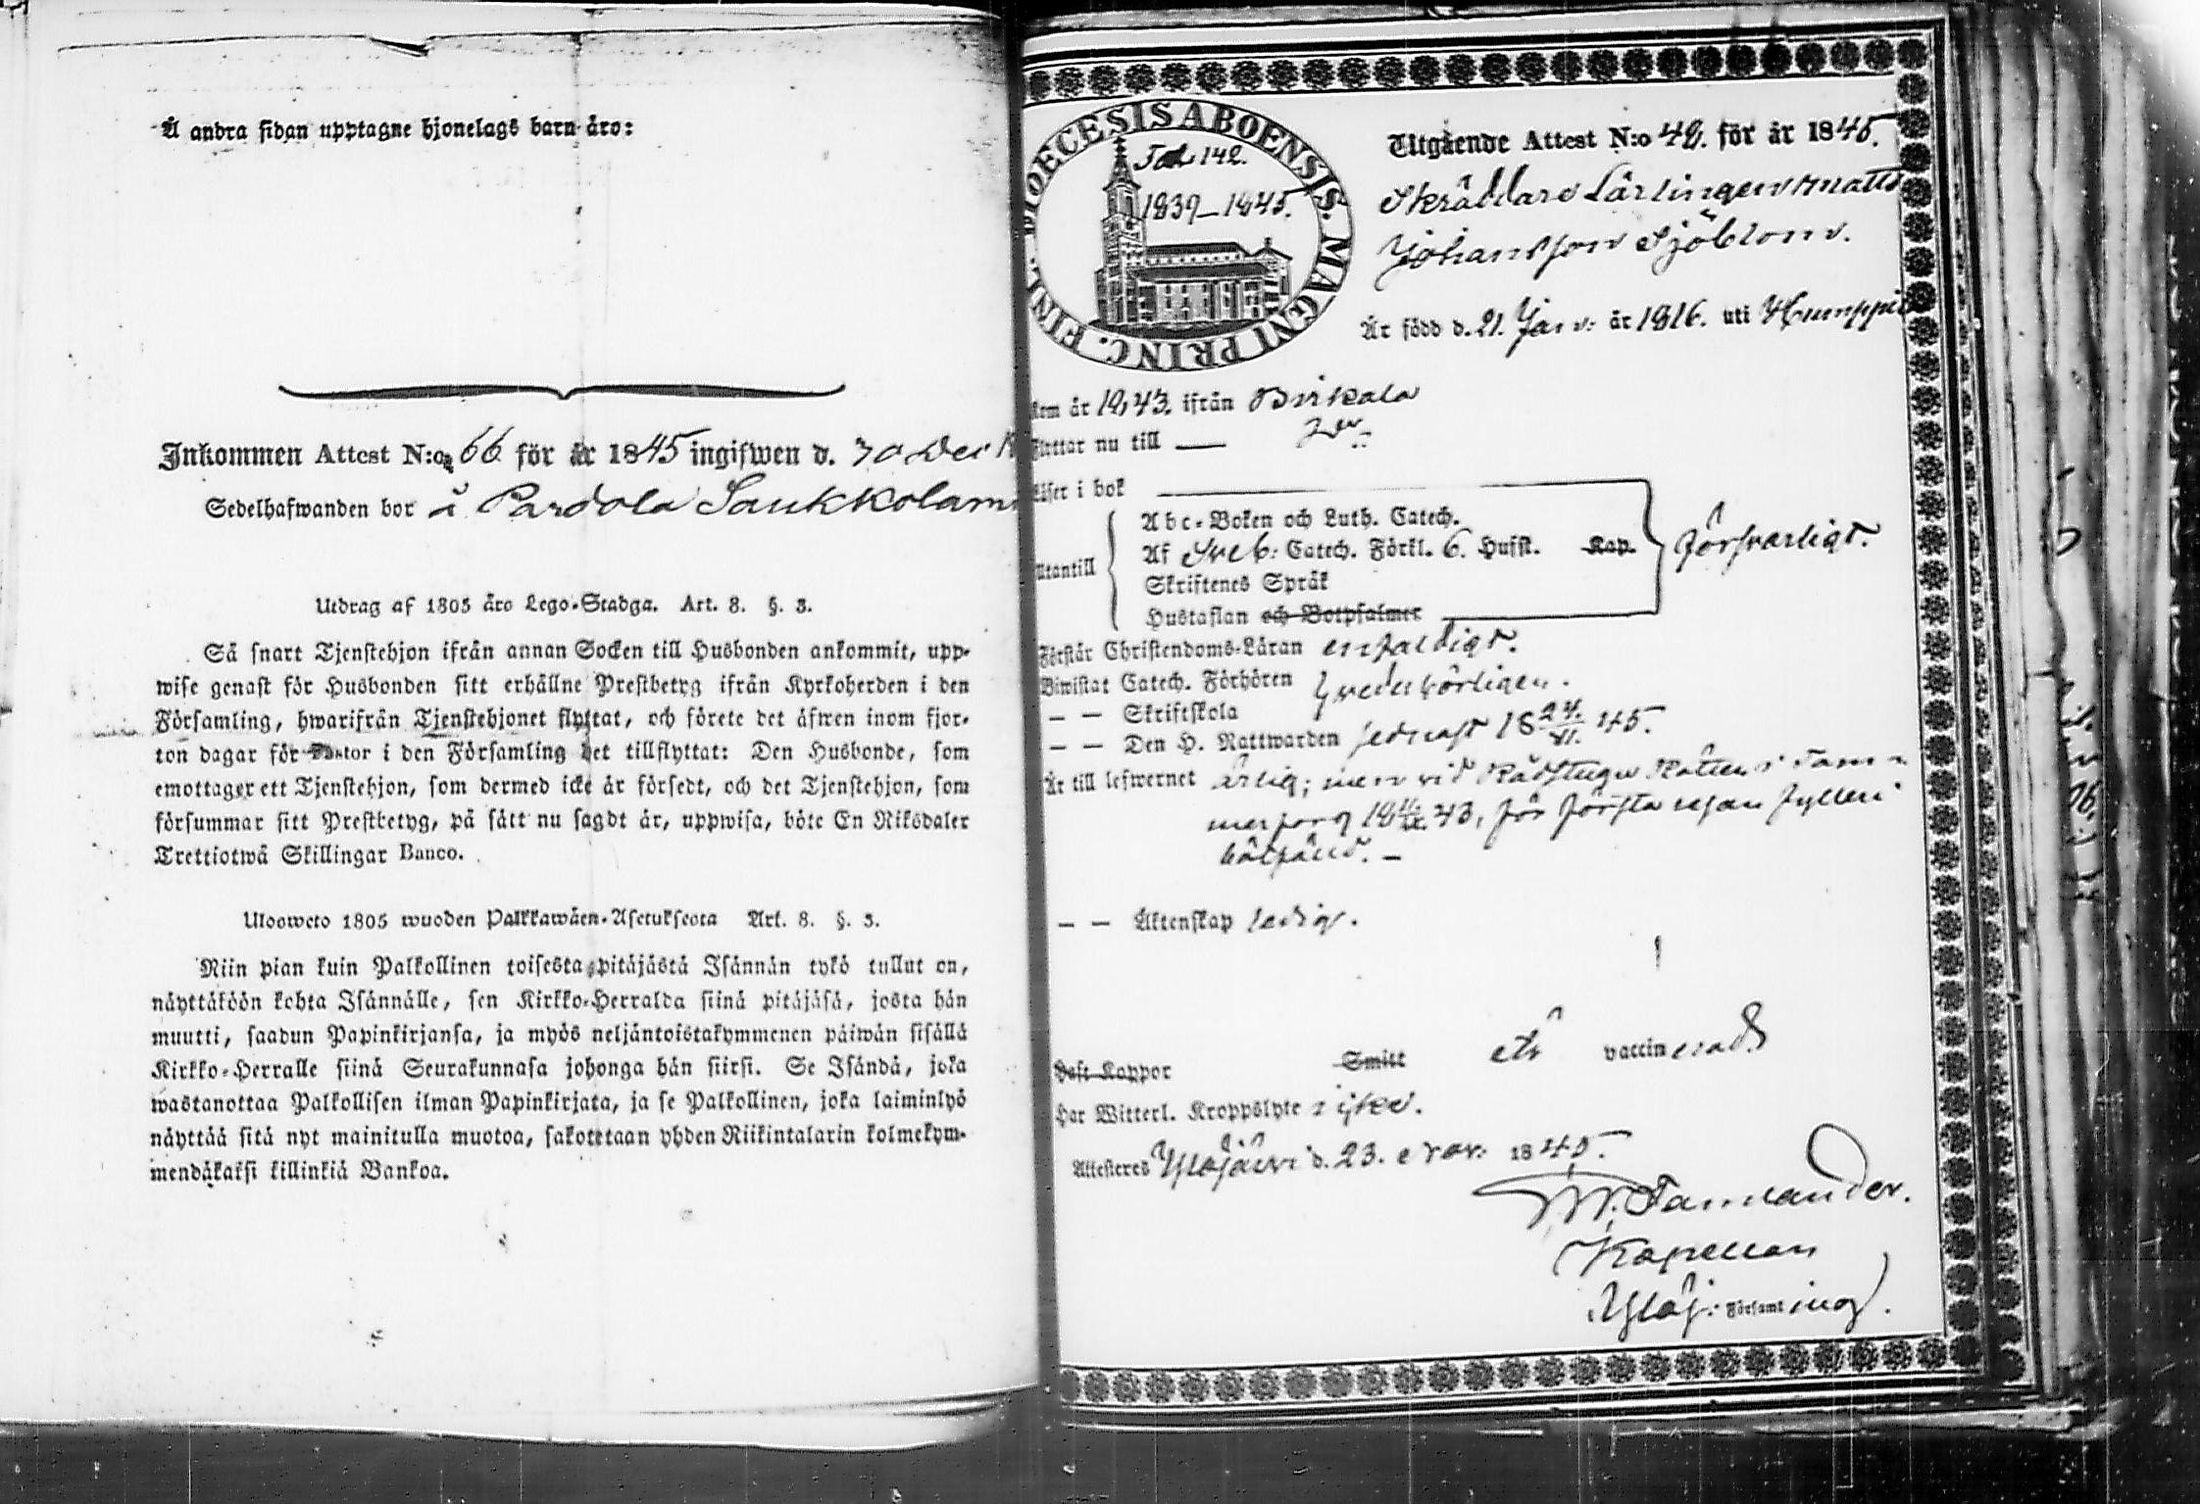 Å andra sidan upptagne hjonelags barn äro:
Inkommen Attest N:o 66 för år 1845 ingifwen d. 30 Dec
Sedelhafwanden bor å Pardola Saukkola
Utdrag af 1805 års Lego-Stadga. Art. 8. §. 3.
Så snart Tjenstehjon ifrån annan Socken till Husbonden ankommit, upp-
wise genast för Husbonden sitt erhållne Prestbetyg ifrån Kyrkoherden i den
Församling, hwarifrån Tjenstehjonet flyttat, och förete det äfwen inom fjor-
ton dagar för Pastor i den Församling det tillflyttat: Den Husbonde, som
emottager ett Tjenstehjon, som dermed icke är försedt, och det Tjenstehjon, som
försummar sitt Prestbetyg, på sätt nu sagdt är, uppwisa, böte En Riksdaler
Trettiotwå Skillingar Banco.
Ulosweto 1805 wuoden Palkkawäen-Asetuksesta Art. 8. §. 3.
Niin pian kuin Palkollinen toisesta pitäjästä Isännän tykö tullut on,
näyttäköön kohta Isännälle, sen Kirkko-Herralda siinä pitäjäsä, josta hän
muutti, saadun Papinkirjansa, ja myös neljäntoistakymmenen päiwän sisällä
Kirkko-Herralle siinä Seurakunnasa johonga hän siirsi. Se Isändä, joka
wastanottaa Palkollisen ilman Papinkirjata, ja se Palkollinen, joka laiminlyö
näyttää sitä nyt mainitulla muotoa, sakotetaan yhden Riikintalarin kolmekym-
mendäkaksi killinkiä Bankoa.
DIOECESIS ABOENSIS. MAGNI PRINC. FINL.
Fol 142.
1839–1845.
Utgående Attest N:o 48. för år 1845.
Skräddare Lärlingen Matts
Johansson Sjöblom.
Är född d. 21. Janv. år 1816. uti Humppi
Kom år 1843. ifrån Birkala
Flyttar nu till — 
Läser i bok
Abc-Boken och Luth. Catech.
Utantill Af Sveb. Catech. Förkl. 6. Hufst. Kap. försvarligt.
Skriftenes Språk
Hustaflan och Botpsalmer
Förstår Christendoms-Läran enfaldigt.
Biwistat Catech. Förhören
— — Skriftskola
— — Den H. Nattwarden sednast 18 23/XI. 45.
Är till lefwernet ärlig; men vid Rådstugu Rätten i Tam-
merfors 18 43, för första resan fylleri
bötfäld. —
— — Äktenskap ledig.
Haft Koppor Smitt är vaccinerad.
Har Witterl. Kroppslyte: icke.
Attesteras Ylöjärvi d. 23. Nov. 1845.
Tamlander.
Kapellan
Ylöj. Församling.